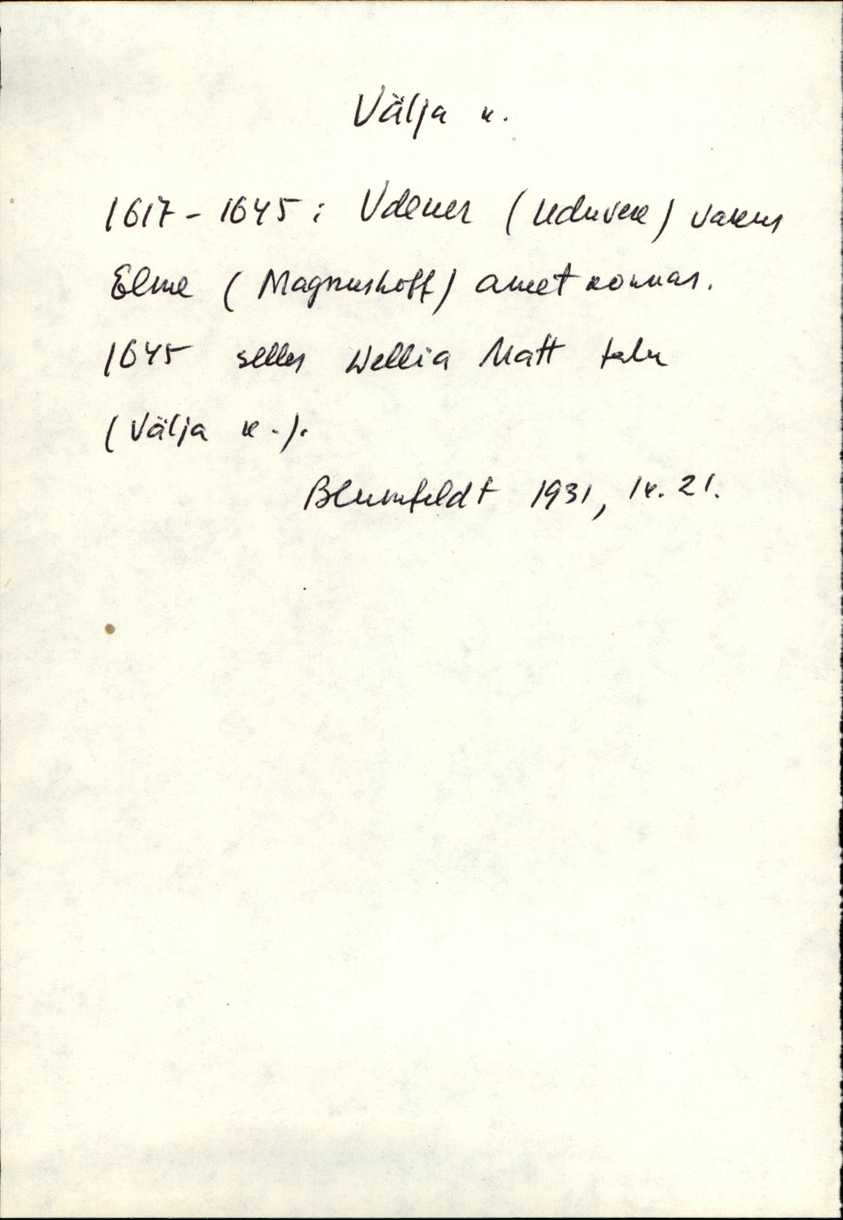 Välja k.
1617-1645: Udever (Uduvere) vakus
Elme (Magnushoff) ametkonnas.
1645 selles Wellia Matt talu
(Välja k.).
Blumfeldt 1931, lk. 21.